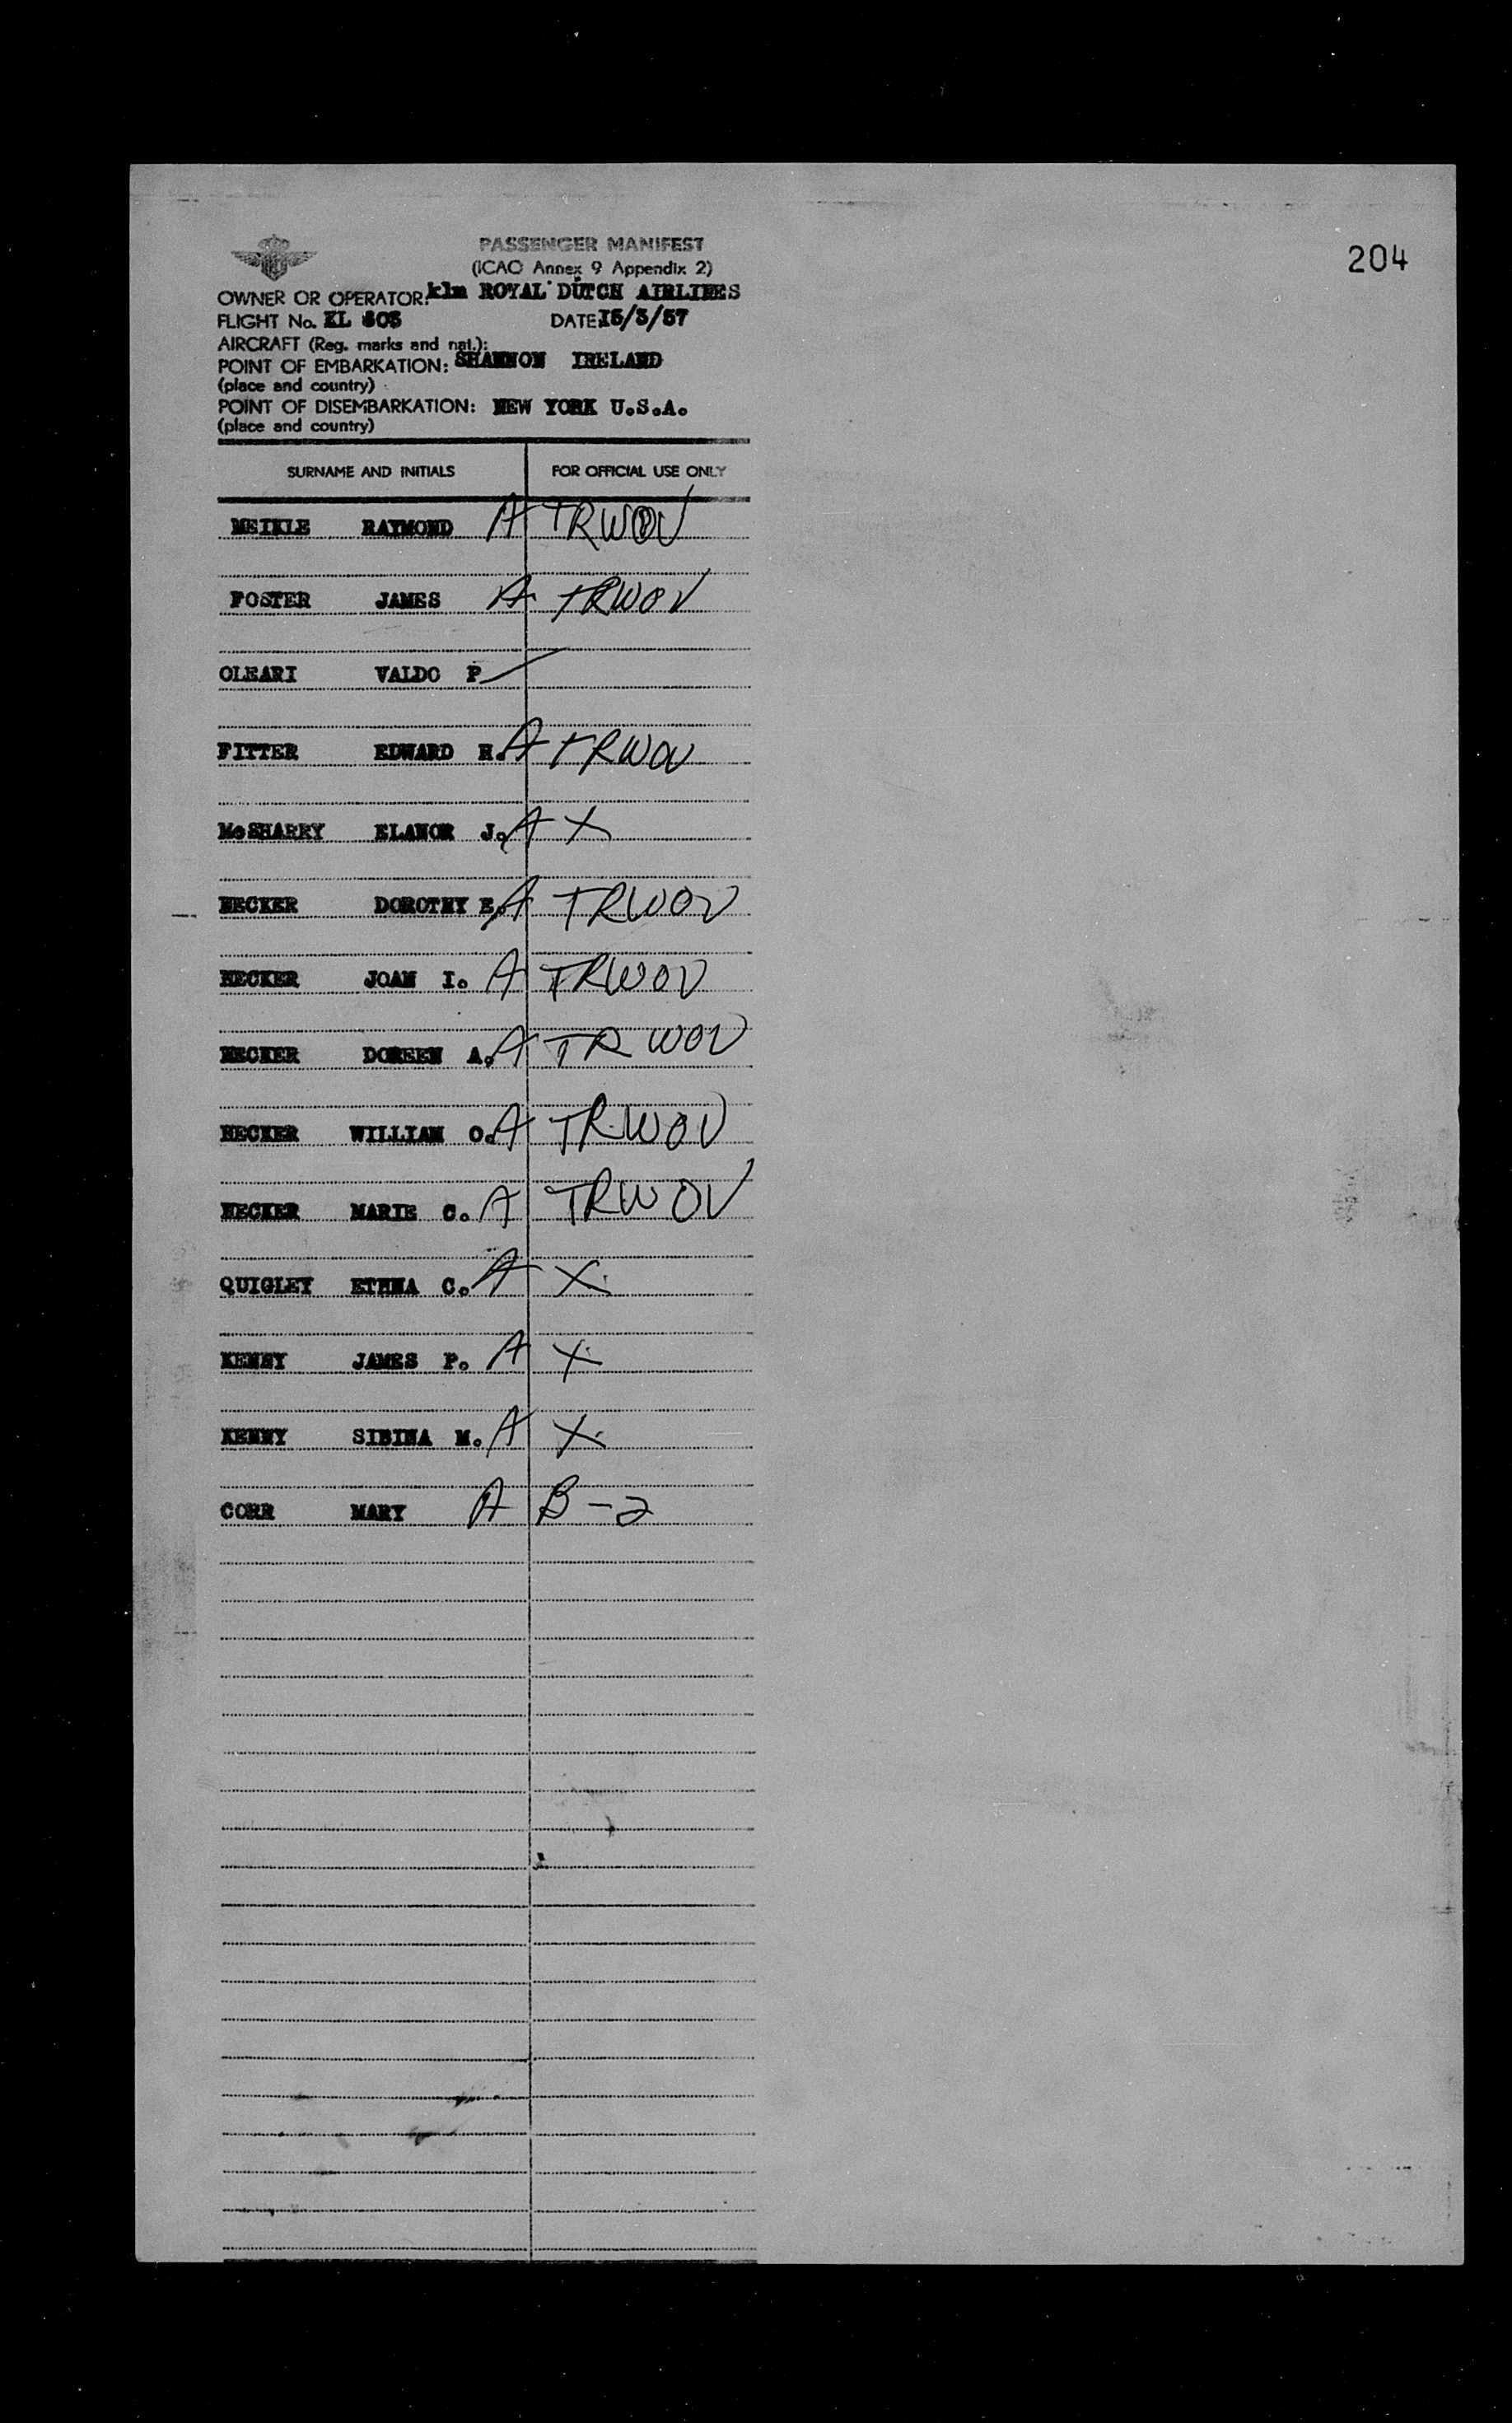 204
PASSENGER MANIFEST
(ICAO Annex 9 Appendix 2)
OWNER OR OPERATOR: klm ROYAL DUTCH AIRLINES
FLIGHT No. KL
DATE: 15/3/57
AIRCRAFT (Reg. marks and nat.):
POINT OF EMBARKATION: SHANNON IRELAND
(place and country)
POINT OF DISEMBARKATION: NEW YORK U.S.A.
(place and country)
SURNAME AND INITIALS FOR OFFICIAL USE ONLY
MEIKLE RAYMOND A TRWOV
FOSTER JAMES A TRWOV
OLEARI VALDO P
FITTER EDWARD H. A TRWOV
McSHARRY ELANOR J. A X
DOROTHY E. A TRWOV
JOAN I. A TRWOV
DOREEN A. A TRWOV
WILLIAM O. A TRWOV
MARIE C. A TRWOV
QUIGLEY ETHNA C. A X
KENNY JAMES P. A X
KENNY SIBINA M. A X
CORR MARY A B-2